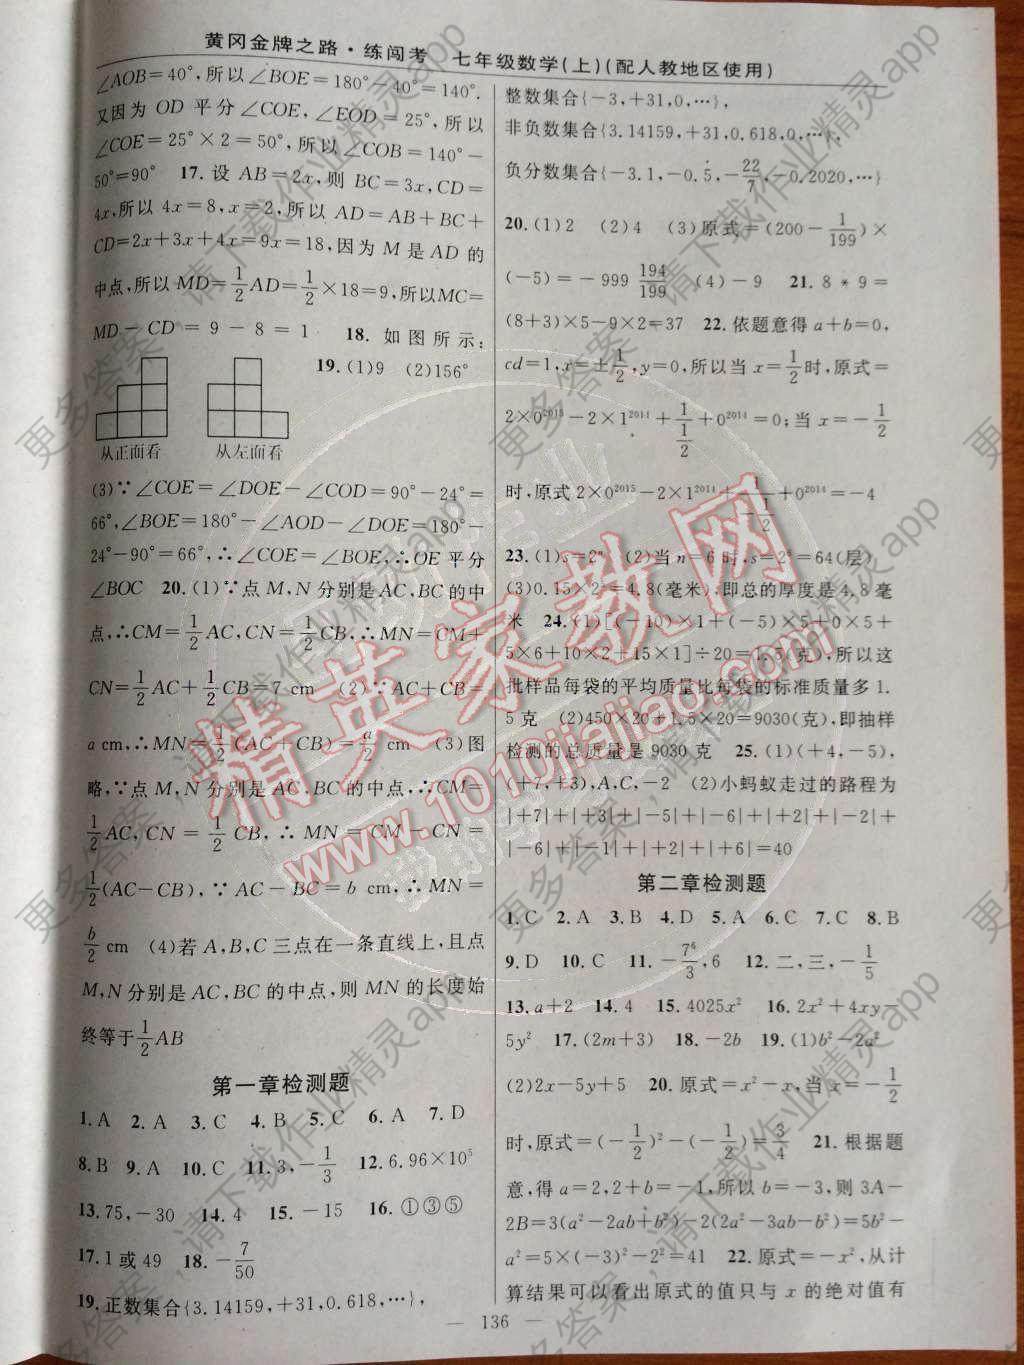 黄冈金牌之路·练闯考 七年级数学(上)(配人教地区使用)
∠AOB=40°,所以∠BOE=180°-40°=140°.
又因为 OD 平分∠COE,∠EOD=25°,所以
∠COE=25°×2=50°,所以∠COB=140°-
50°=90° 17.设 AB=2x,则 BC=3x,CD=
4x,所以 4x=8,x=2,所以 AD=AB+BC+
CD=2x+3x+4x=9x=18,因为 M 是 AD 的
中点,所以MD=1/2AD=1/2×18=9,所以MC=
MD-CD=9-8=1 18.如图所示:
19.(1)9 (2)156°
从正面看 从左面看
(3)∵∠COE=∠DOE-∠COD=90°-24°=
66°,∠BOE=180°-∠AOD-∠DOE=180°-
24°-90°=66°,∴∠COE=∠BOE,∴OE平分
∠BOC 20.(1)∵点 M,N 分别是 AC,BC 的中
点,∴CM=1/2AC,CN=1/2CB,∴MN=CM+
CN=1/2AC+1/2CB=7 cm (2)∵AC+CB=
a cm,∴MN=1/2(AC+CB)=a/2 cm (3)图
略,∵点 M,N 分别是 AC,BC的中点,∴CM=
1/2AC,CN=1/2CB,∴MN=CM-CN=
1/2(AC-CB),∵AC-BC=b cm,∴MN=
b/2 cm (4)若 A,B,C 三点在一条直线上,且点
M,N 分别是 AC,BC 的中点,则 MN 的长度始
终等于1/2AB
第一章检测题
1.A 2.A 3.C 4.B 5.C 6.A 7.D
8.B 9.A 10.C 11.3,-1/3 12.6.96×10⁵
13.75,-30 14.4 15.-15 16.①③⑤
17.1 或 49 18.-7/50
19.正数集合{3.14159,+31,0.618,…},
整数集合{-3,+31,0,…},
非负数集合{3.14159,+31,0.618,0,…},
负分数集合{-3.1,-0.5,-22/7,-0.2020,…}
20.(1)2 (2)4 (3)原式=(200-1/199)×
(-5)=-999 194/199 (4)-9 21.8*9=
(8+3)×5-9×2=37 22.依题意得 a+b=0,
cd=1,x=±1/2,y=0,所以当 x=1/2时,原式=
2×0²⁰¹⁵-2×1²⁰¹⁴+1/(1/2)+0²⁰¹⁴=0;当 x=-1/2
时,原式 2×0²⁰¹⁵-2×1²⁰¹⁴+1/(-1/2)+0²⁰¹⁴=-4
23.(1)s=2ⁿ (2)当 n=6 时,s=2⁶=64(层)
(3)0.15×2⁵=4.8(毫米),即总的厚度是4.8毫
米 24.(1)[(-10)×1+(-5)×5+0×5+
5×6+10×2+15×1]÷20=1.5(克),所以这
批样品每袋的平均质量比每袋的标准质量多1.
5克 (2)450×20+1.5×20=9030(克),即抽样
检测的总质量是 9030 克 25.(1)(+4,-5),
(+7,+3),A,C,-2 (2)小蚂蚁走过的路程为
|+7|+|+3|+|-5|+|-6|+|+2|+|-2|+
|-6|+|-1|+|+2|+|+6|=40
第二章检测题
1.C 2.A 3.B 4.D 5.A 6.C 7.C 8.B
9.D 10.C 11.-7/3,6 12.二,三,-1/5
13.a+2 14.4 15.4025x² 16.2x²+4xy-
5y² 17.(2m+3) 18.-2b 19.(1)b²-2a²
(2)2x-5y+5 20.原式=x²-x,当 x=-1/2
时,原式=(-1/2)²-(-1/2)=3/4 21.根据题
意,得 a=2,2+b=-1,所以 b=-3,则 3A-
2B=3(a²-2ab+b²)-2(2a²-3ab-b²)=5b²-
a²=5×(-3)²-2²=41 22.原式=-x²,从计
算结果可以看出原式的值只与 x 的绝对值有
— 136 —
精英家教网
www.1010jiajiao.com
更多答案,请下载作业精灵app